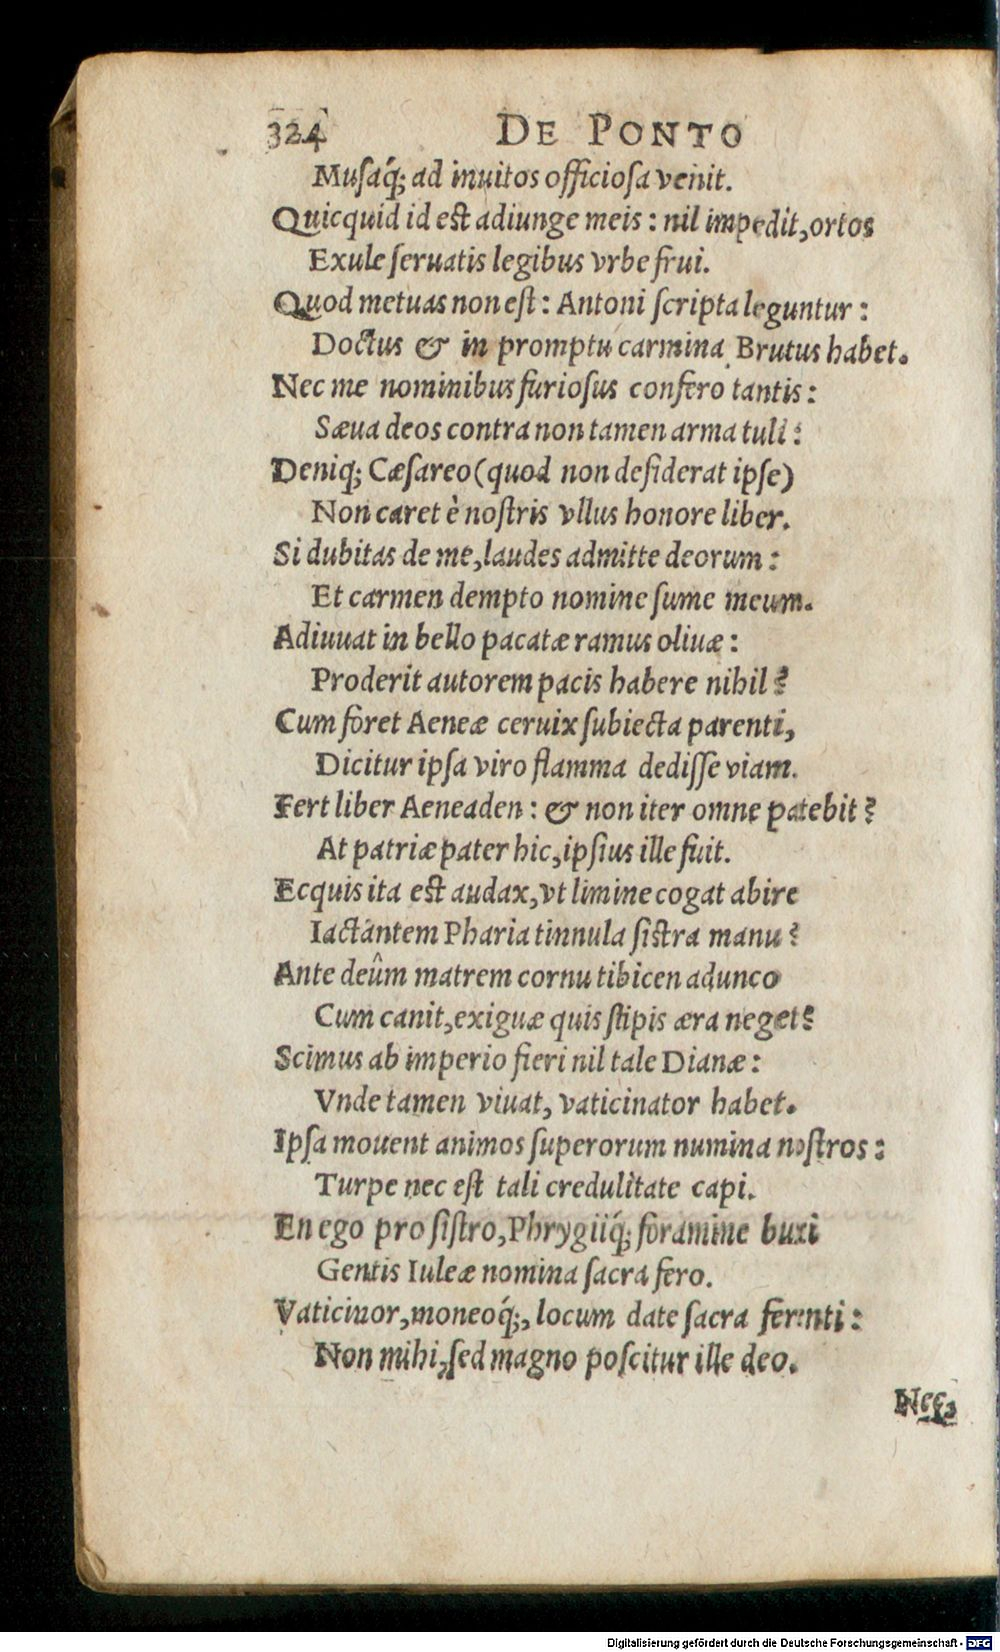 324 DE PONTO
Muſaq́; ad inuitos officioſa venit.
Quicquid id eſt adiunge meis: nil impedit, ortos
Exule ſeruatis legibus vrbe frui.
Quod metuas non eſt: Antoni ſcripta leguntur:
Doctus & in promptu carmina Brutus habet.
Nec me nominibus furioſus confero tantis:
Sæua deos contra non tamen arma tuli:
Deniq; Cæſareo (quod non deſiderat ipſe)
Non caret è noſtris vllus honore liber.
Si dubitas de me, laudes admitte deorum:
Et carmen dempto nomine ſume meum.
Adiuuat in bello pacatæ ramus oliuæ:
Proderit autorem pacis habere nihil?
Cum foret Aeneæ ceruix ſubiecta parenti,
Dicitur ipſa viro flamma dediſſe viam.
Fert liber Aeneaden: & non iter omne patebit?
At patriæ pater hic, ipſius ille fuit.
Ecquis ita eſt audax, vt limine cogat abire
Iactantem Pharia tinnula ſiſtra manu?
Ante deûm matrem cornu tibicen adunco
Cum canit, exiguæ quis ſtipis æra neget?
Scimus ab imperio fieri nil tale Dianæ:
Vnde tamen viuat, vaticinator habet.
Ipſa mouent animos ſuperorum numina noſtros:
Turpe nec eſt tali credulitate capi.
En ego pro ſiſtro, Phrygiiq́; foramine buxi
Gentis Iuleæ nomina ſacra fero.
Vaticinor, moneoq́;, locum date ſacra ferenti:
Non mihi, ſed magno poſcitur ille deo.
Nec,
Digitalisierung gefördert durch die Deutsche Forschungsgemeinschaft - DFG